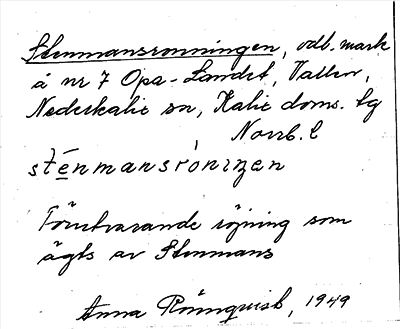 Stenmansronningen, odl. mark
å nr 7 Opa-Landet, Vallen,
Nederkalix sn, Kalix doms. lg
Norrb. l
sténmansróniŋen
Förutvarande röjning som
ägts av Stenmans
Anna Rönnqvist, 1949